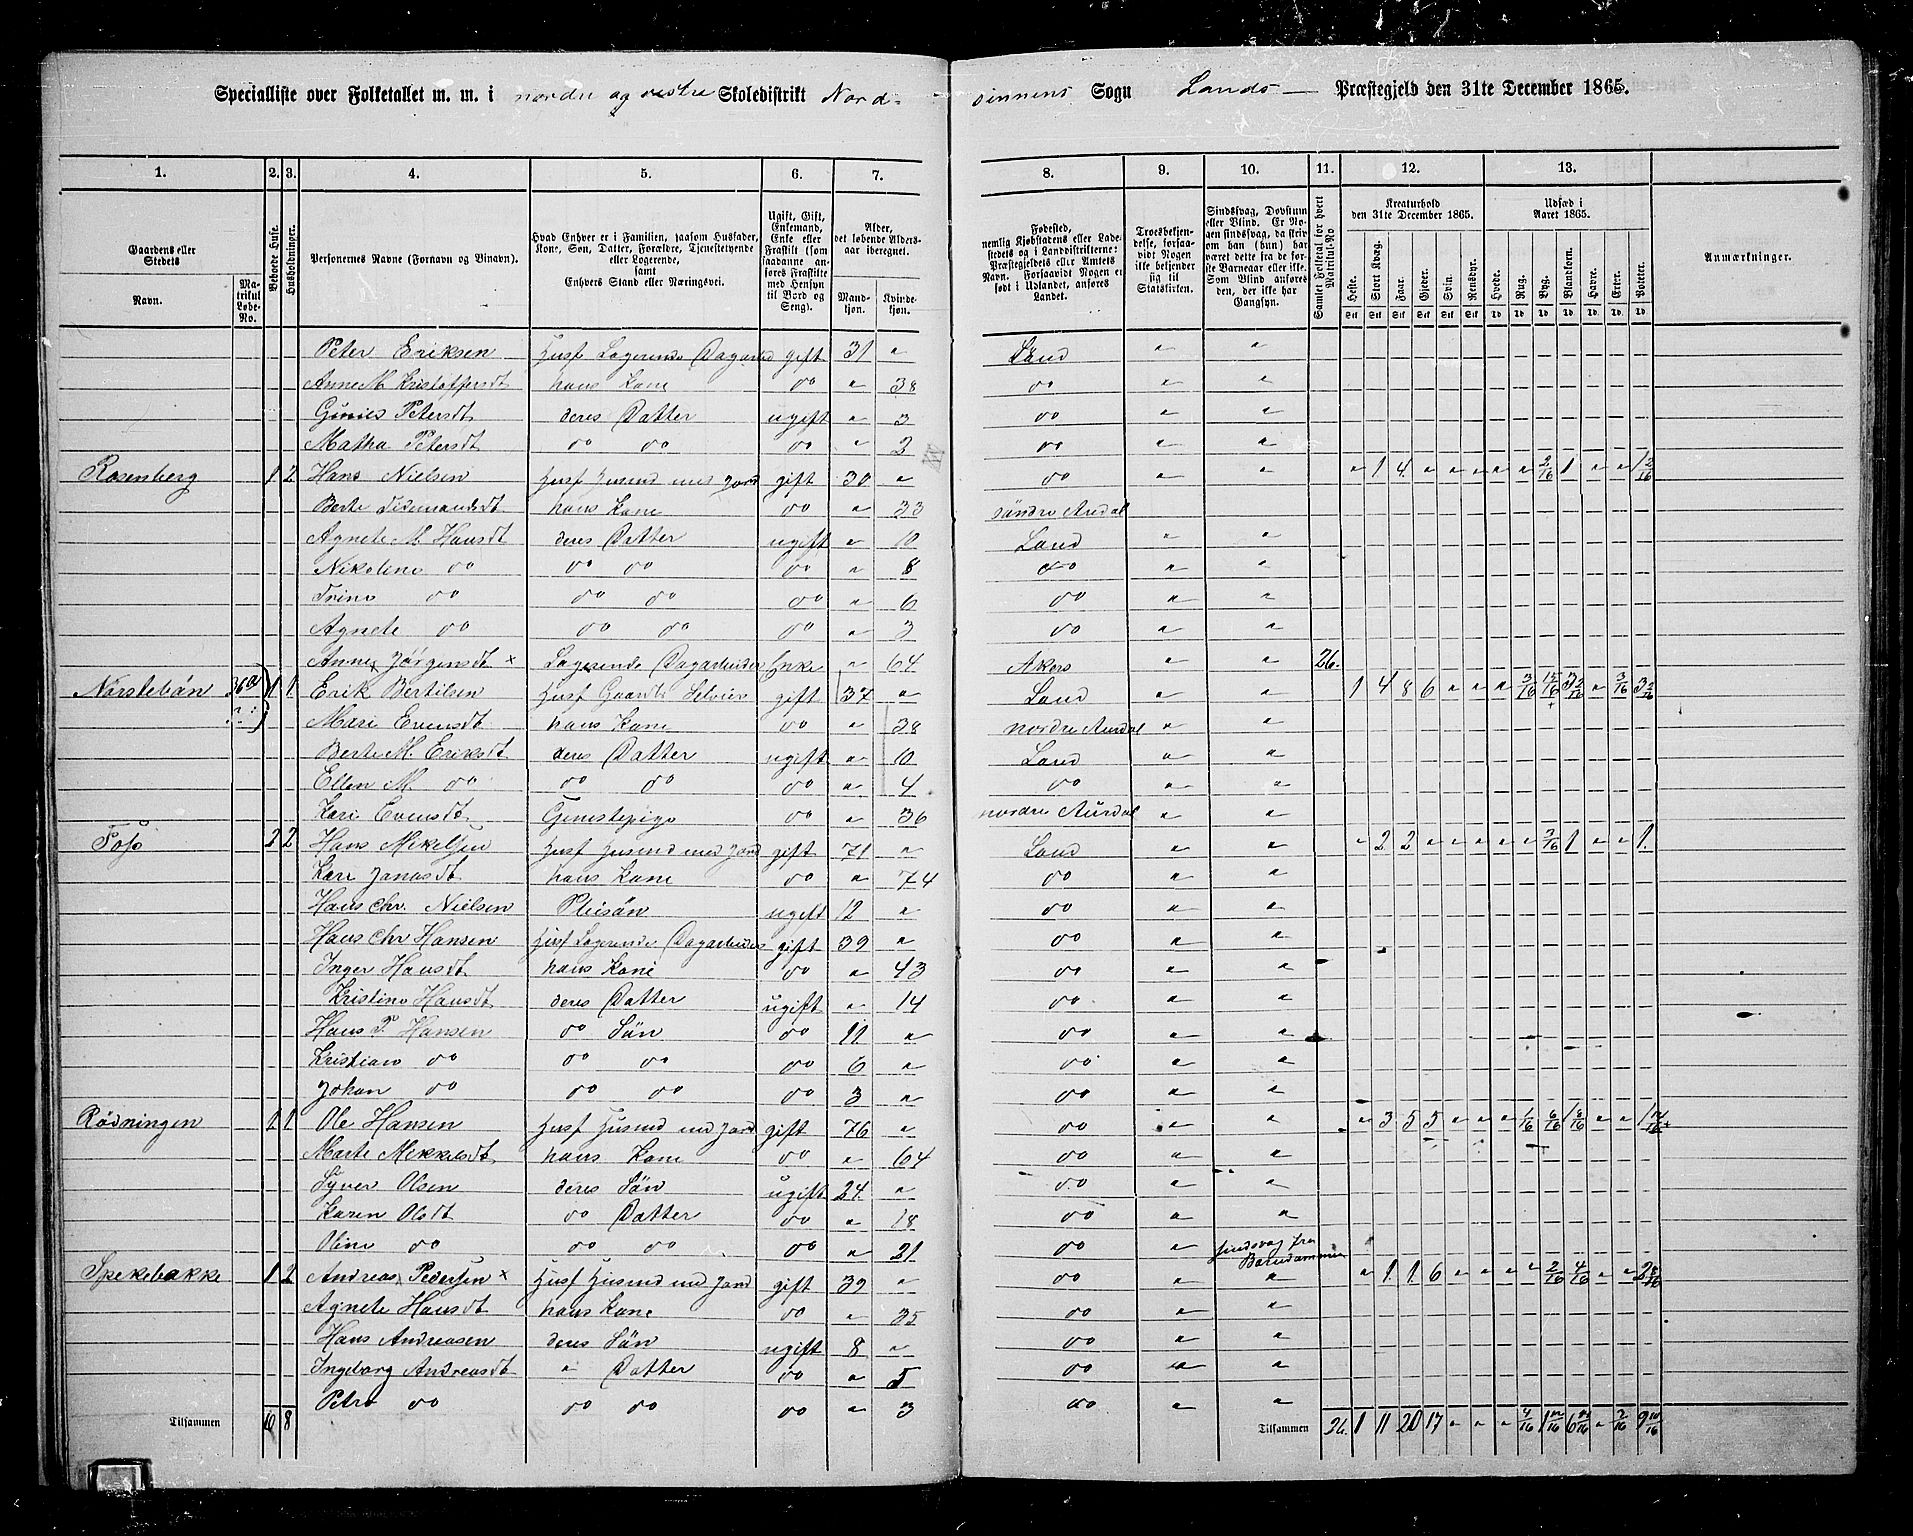 Specialliste over Folketallet m. m. i nordre og vestre Skoledistrikt Nord-
sinnens Sogn Lands Præstegjeld den 31te December 1865.
1. 2. 3. 4. 5. 6. 7. 8. 9. 10. 11. 12. 13.
Gaardens eller Stedets
Navn.
Matrikul Løbe-No.
Beboede Huse.
Husholdninger.
Personernes Navne (Fornavn og Tilnavn).
Hvad Enhver er i Familien, saasom Husfader, Kone, Søn, Datter, Forældre, Tjenestetyende eller Logerende, samt Enhvers Stand eller Næringsvei.
Ugift, Gift, Enkemand, Enke eller Fraskilt (som saadanne anføres Fraskilte med Hensyn til Bord og Seng).
Alder, det løbende Aldersaar iberegnet.
Mandkjøn. Kvindekjøn.
Fødested, nemlig Kjøbstadens eller Ladestedets og i Landdistrikterne: Præstegjeldets eller Amtets Navn. Forsaavidt Nogen er født i Udlandet, anføres Landet.
Troesbekjendelse, forsaavidt Nogen ikke bekjender sig til Statskirken.
Sindssvag, Døvstum eller Blind. Er Nogen sindssvag, da skrives om han (hun) har været dette fra de første Barneaar eller ikke. Som Blind anføres den, der ikke har Gangsyn.
Samlet Folketal for hvert Matrikul-No
Kreaturhold den 31te December 1865.
Heste. Stort Kvæg. Faar. Gjeder. Svin. Rensdyr.
Udsæd i Aaret 1865.
Hvede. Rug. Byg. Blandkorn. Havre. Erter. Poteter.
Anmærkninger.
Peter Eriksen Husf Logerende Dagarbeid gift 31 " Land " "
Anne M. Kristoffersdt hans Kone do " 38 do " "
Petersdt deres Datter ugift " 3 do " "
Matha Petersdt do do do " 2 do " "
Rosenberg 1 2 Hans Nielsen Husf Husmd med Jord gift 30 " do " " " 1 4 " " " " " 2/16 1 " " 1 2/16
Berte Tidemandsdt hans Kone do " 33 søndre Aurdal
Agnete M. Hansdt deres Datter ugift " 10 Land " "
Nikoline do do do do " 8 do " "
Trine do do do do " 6 do " "
Agnete do do do do " 3 do " "
Anne Jørgensdt x Logerende Dagarbeider Enke " 64 Akers " " 26
Narstebön 36 a 1 1 Erik Bertilsen Husf Gaardb Selveier gift 37 " Land " " 1 4 8 6 " " " 3/16 3/16 3 2/16
Mari Evensdt hans Kone do " 38 nordre Aurdal " "
Berte M. Eriksdt deres Datter ugift " 10 Land " "
Ellen M. do do do do " 4 do " "
Kari Evensdt Tjenestepige do " 36 nordre Aurdal " "
2 2 Hans Mikelsen Husf Husmd med Jord gift 71 " Land " " " 2 2 " " " " " 3/16 1 " " 1
Kari Jonasdt hans Kone do " 74 do " "
Hans Chr. Nielsen Pleisøn ugift 12 " do " "
Hans Chr Hansen Husf Logerende Dagarbeider gift 39 " do " "
Inger Hansdt hans Kone do " 43 do " "
Kristine Hansdt deres Datter ugift " 14 do " "
Hans P. Hansen do Søn do 11 " do " "
Kristian do do do do 6 " do " "
Johan do do do do 3 " do " "
Rødningen 2 1 Ole Hansen Husf Husmd med Jord gift 76 " do " " " 3 5 5 " " " 1/16 6/16 1 8/16 " " 1
Marte Mikkelsdt hans Kone do " 64 do " "
Syver Olsen deres Søn ugift 24 " do " "
Karen Olsdt do Datter do " 18 do " "
Oline do do do do " 21 do " sindsvag fra Barndommen
Spekebakke 1 2 Andreas Pedersen x Husf Husmd med Jord gift 39 " do " " " 1 1 6 " " " " 2/16 4/16 " " 2 8/16
Agnete Hansdt hans Kone do " 35 do " "
Hans Andreasen deres Søn ugift 8 " do " "
Ingeborg Andreasdt " Datter do " 5 do " "
Petra do do do do " 3 do " "
Tilsammen 10 8
Tilsammen 26 1 11 20 17 " " " 4/16 " 9 10/16